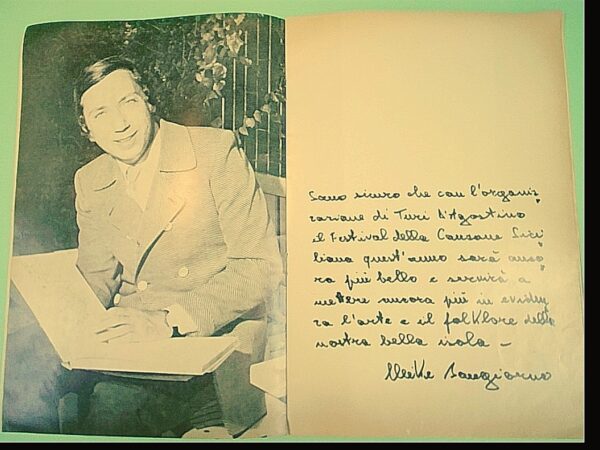 Sono sicuro che con l'organiz
zazione di Turi D'Agostino
il Festival della Canzone Sici
liana quest'anno sarà anco
ra più bello e servirà a
mettere ancora più in eviden
za l'arte e il folKlore della
nostra bella isola -
Mike Bongiorno